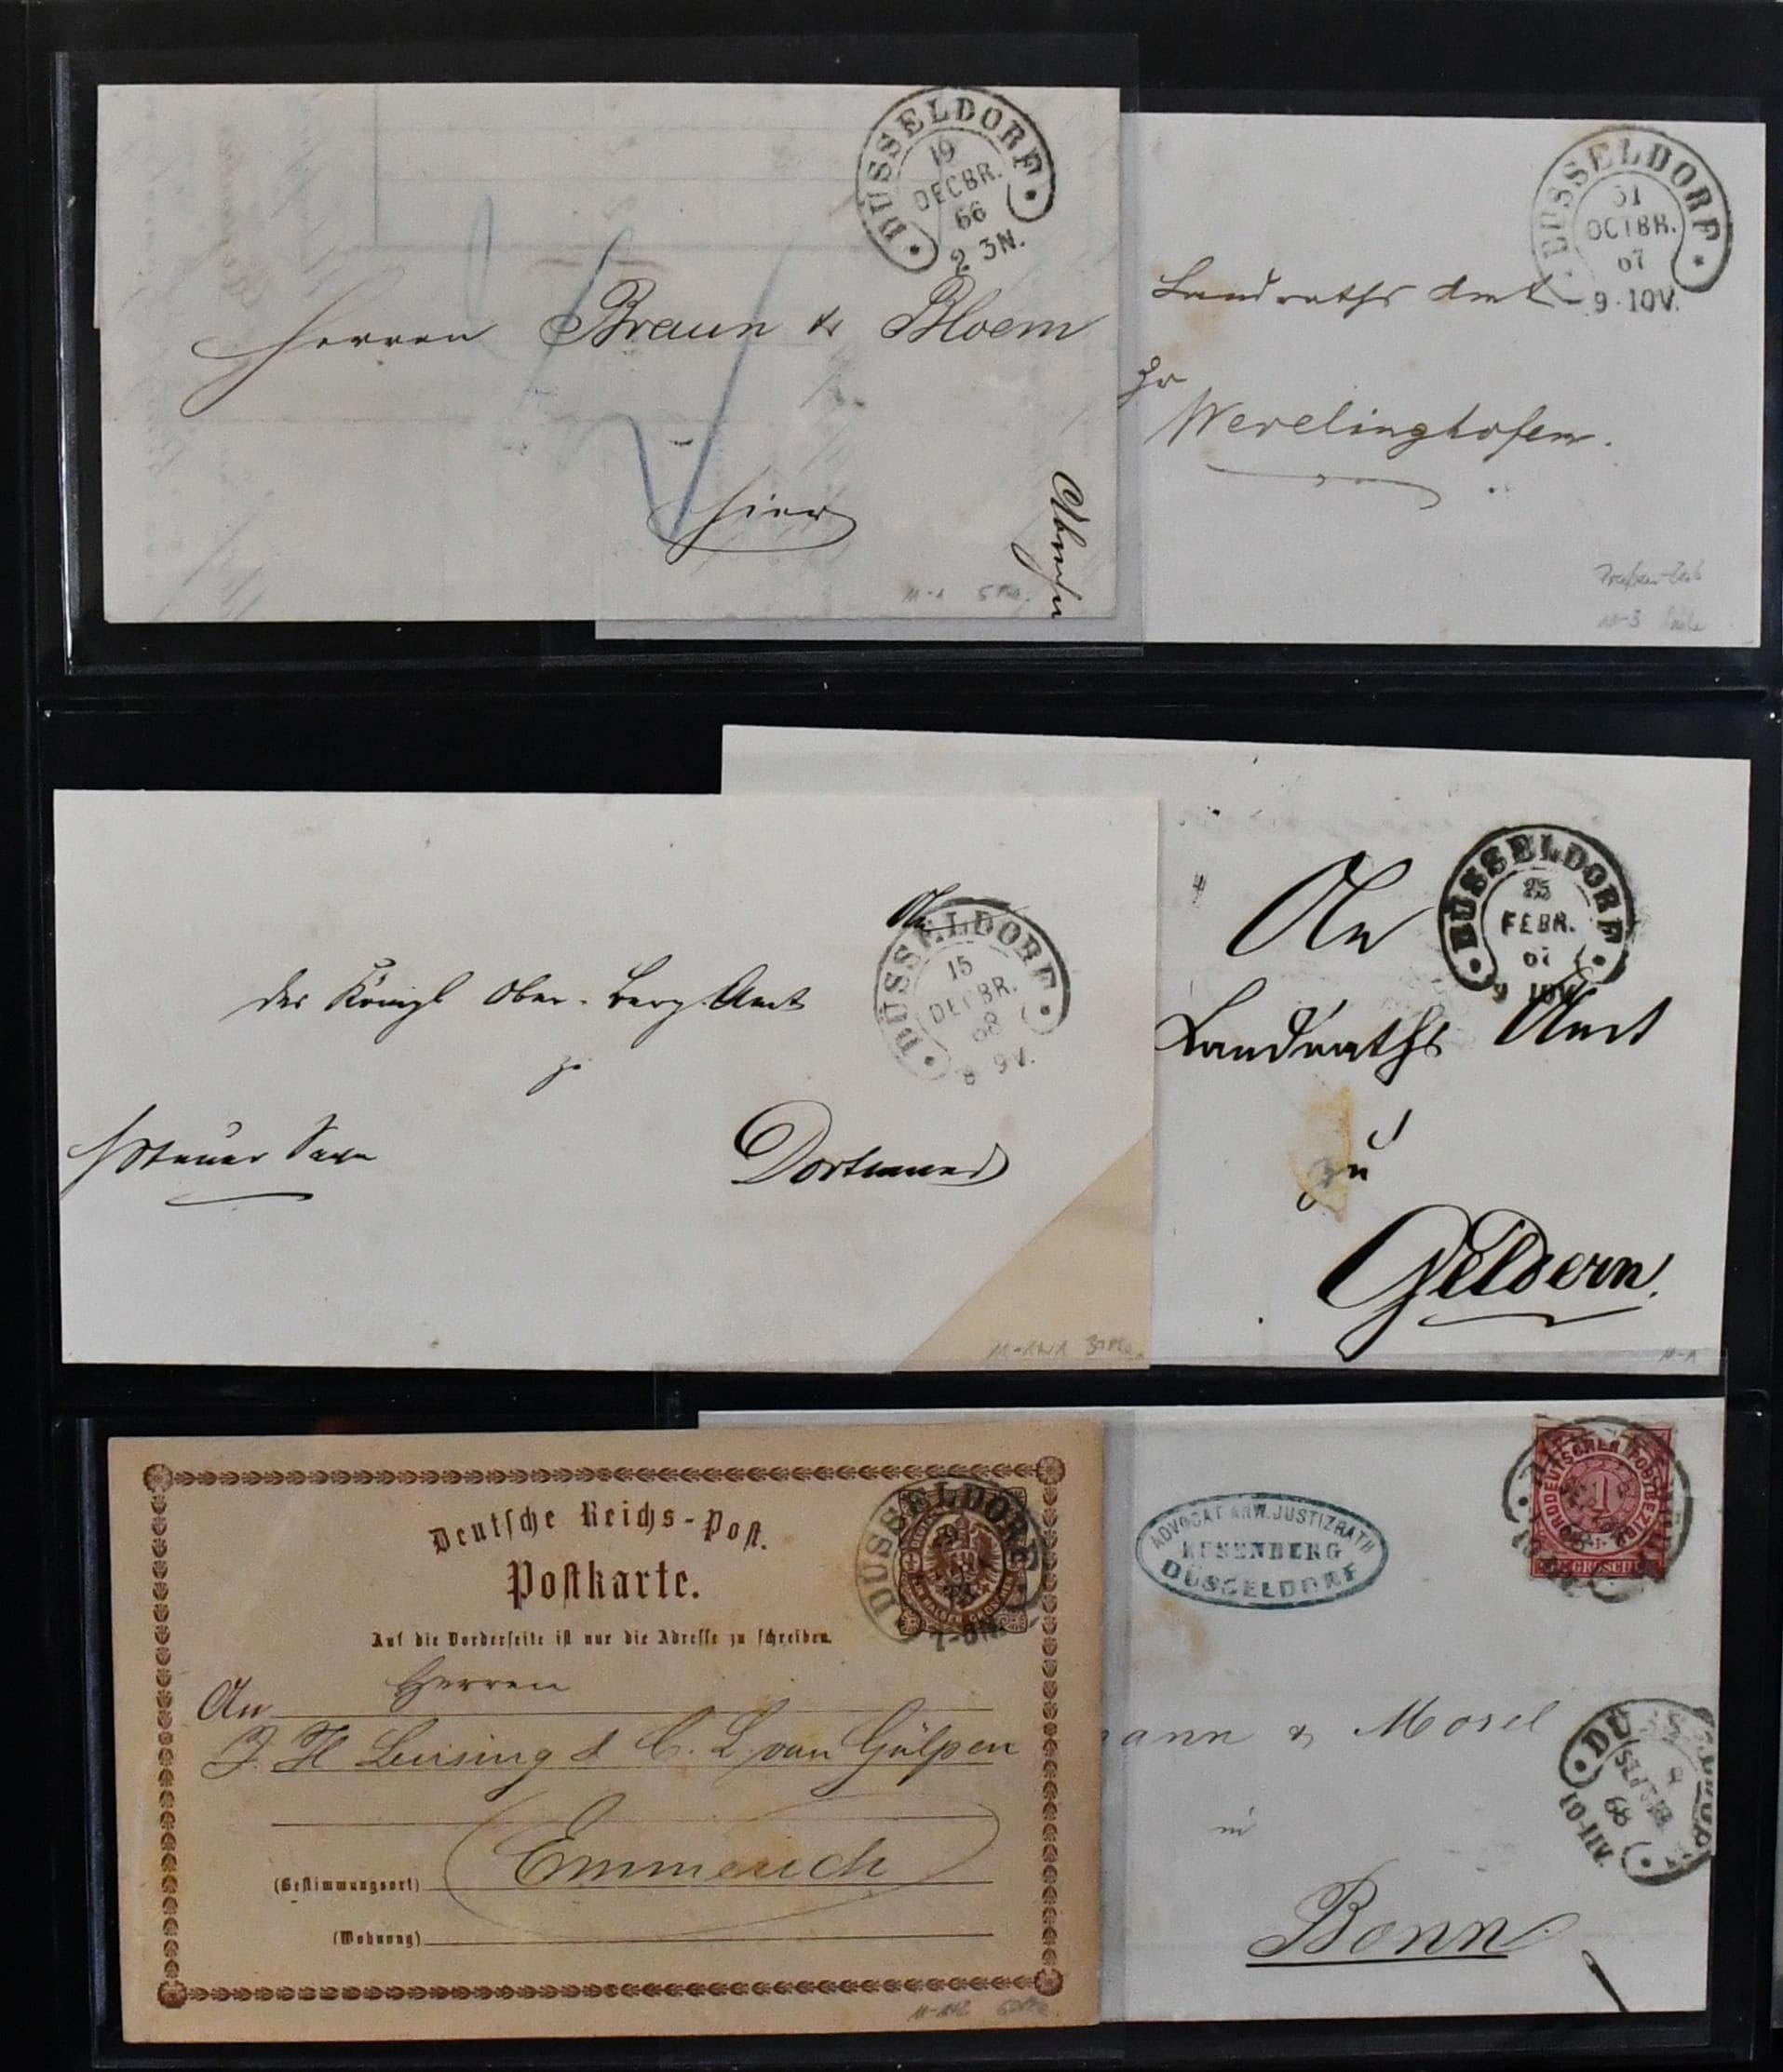 DÜSSELDORF
19
DECBR.
66
2 3N.
Herren Braun & Bloem
hier
DÜSSELDORF
31
OCTBR.
67
9-10V.
Landraths Amt
zu
Wevelinghofen.
An
DÜSSELDORF
15
DECBR.
68
8 9V.
das Königl Ober-Berg-Amt
zu
Dortmund
An
DÜSSELDORF
25
FEBR.
67
Landraths Amt
zu
Geldern.
Deutsche Reichs-Post.
Postkarte.
Auf die Vorderseite ist nur die Adresse zu schreiben.
DÜSSELDORF
An Herren
J. H. Leising & C. L. van Gülpen
Emmerich
(Bestimmungsort)
(Wohnung)
NORDDEUTSCHER POSTBEZIRK
1
GROSCHEN
ADVOCAT ANW. JUSTIZRATH
EUSENBERG
DÜSSELDORF
ann & Mosel
in
Bonn
DÜSSELDORF
68